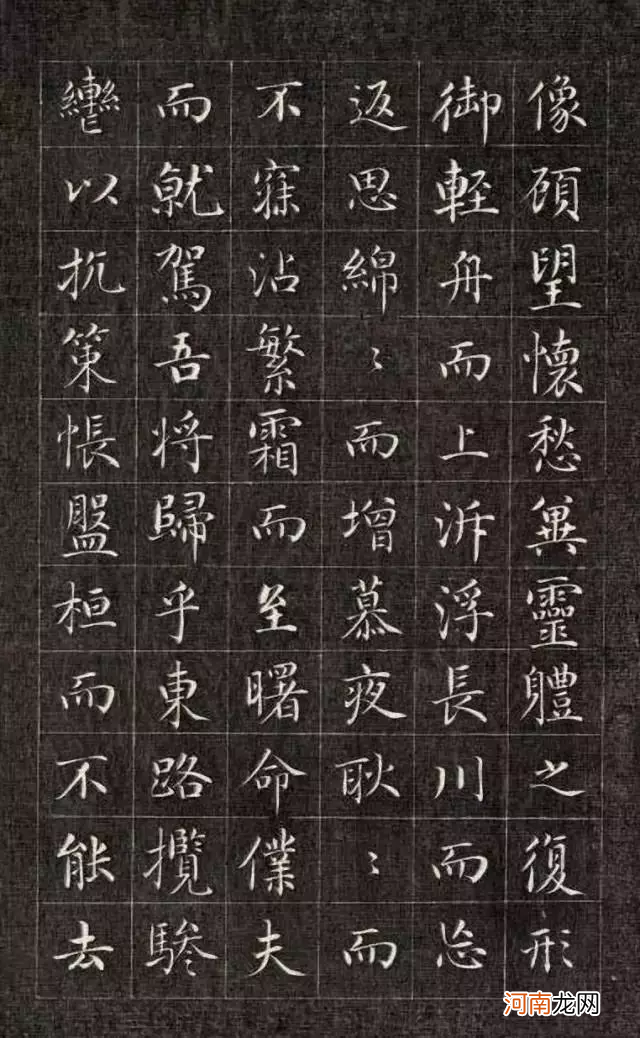 像顾望懷愁兾靈體之復形
御輕舟而上泝浮長川而忘
返思綿〻而增慕夜耿〻而
不寐沾繁霜而至曙命僕夫
而就駕吾将歸乎東路攬騑
轡以抗策悵盤桓而不能去
河南龙网